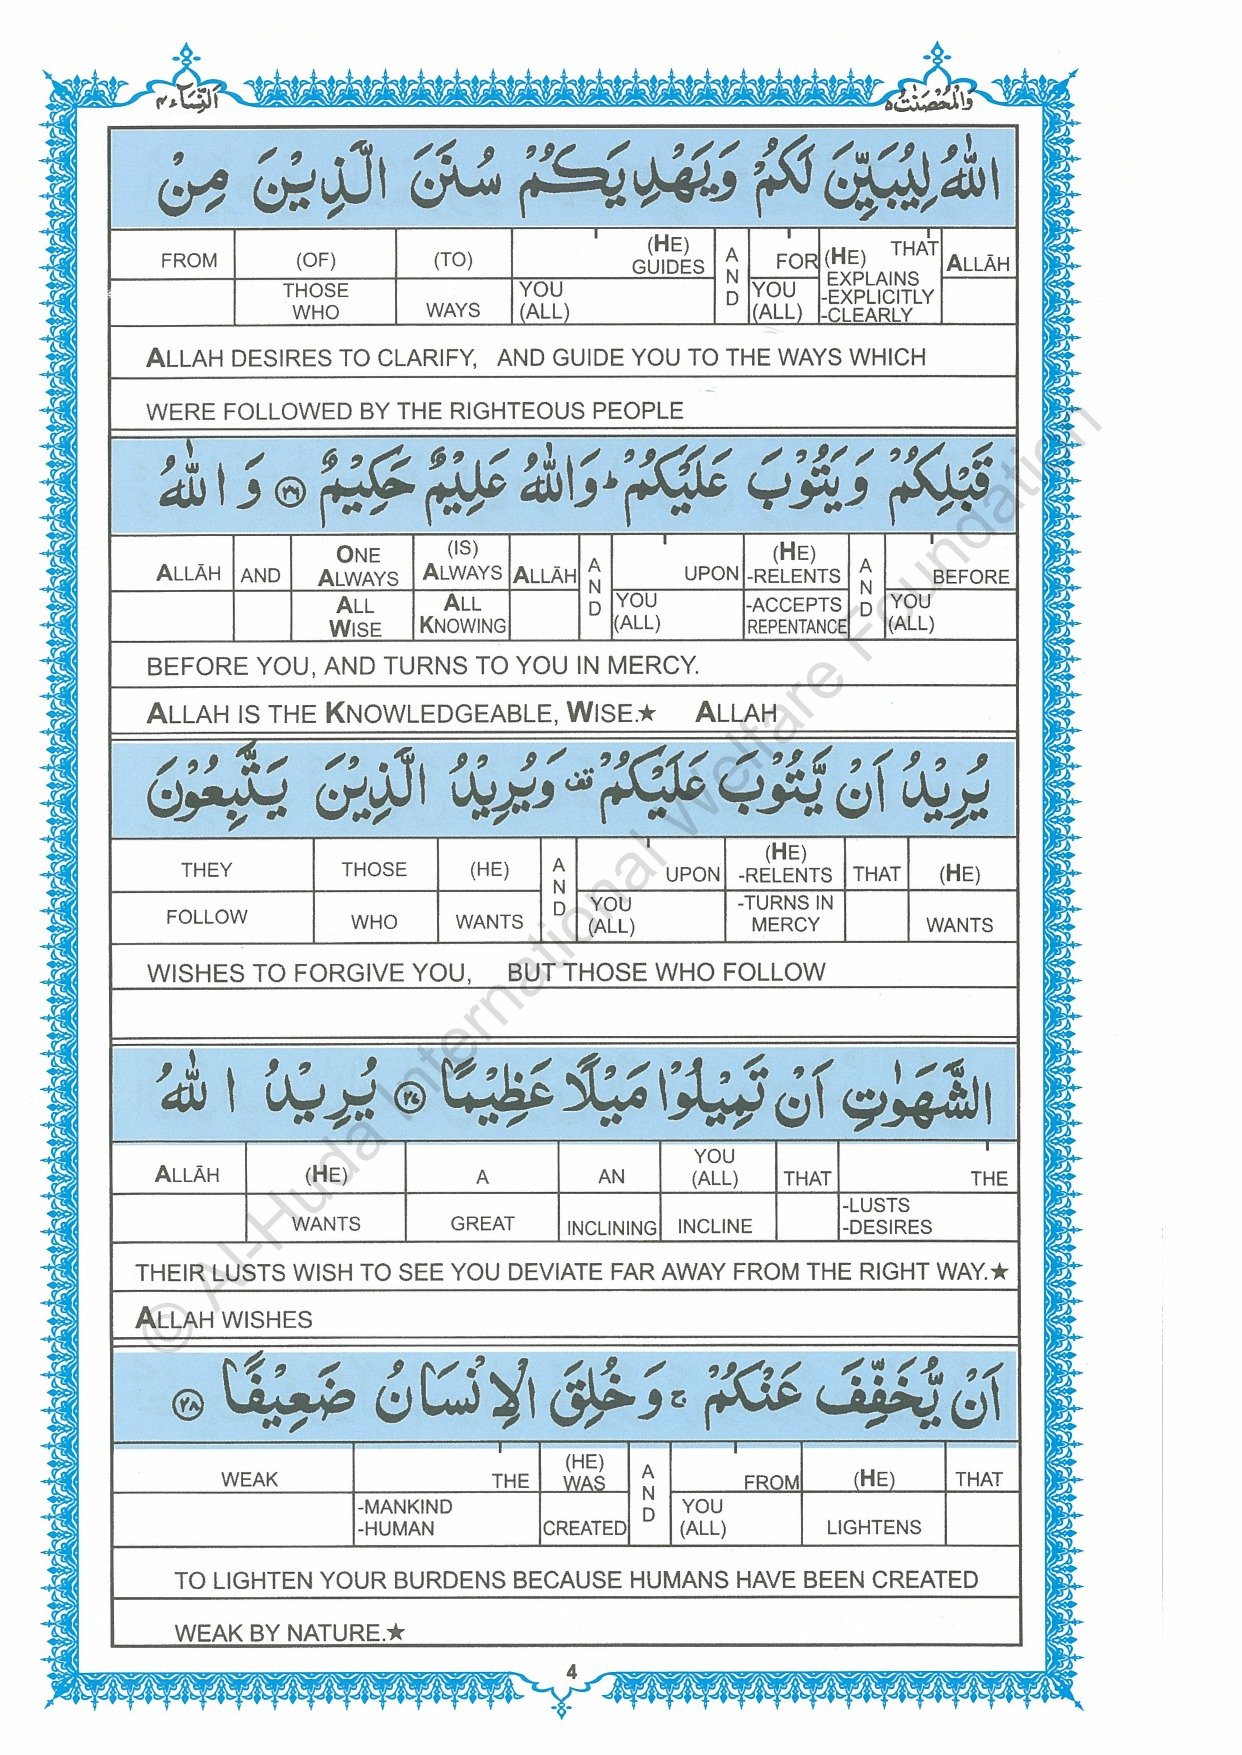 النساء ٤
والمحصنت ٥
اللّٰهُ لِيُبَيِّنَ لَكُمْ وَيَهْدِيَكُمْ سُنَنَ الَّذِيْنَ مِنْ
FROM (OF) (TO) (HE) GUIDES AND FOR (HE) THAT ALLĀH
THOSE WHO WAYS YOU (ALL) YOU (ALL) EXPLAINS -EXPLICITLY -CLEARLY
ALLAH DESIRES TO CLARIFY, AND GUIDE YOU TO THE WAYS WHICH
WERE FOLLOWED BY THE RIGHTEOUS PEOPLE
قَبْلِكُمْ وَيَتُوْبَ عَلَيْكُمْ ؕ وَاللّٰهُ عَلِيْمٌ حَكِيْمٌ ﴿٢٦﴾ وَ اللّٰهُ
ALLĀH AND ONE ALWAYS (IS) ALWAYS ALLĀH AND UPON (HE) -RELENTS AND BEFORE
ALL WISE ALL KNOWING YOU (ALL) -ACCEPTS REPENTANCE YOU (ALL)
BEFORE YOU, AND TURNS TO YOU IN MERCY.
ALLAH IS THE KNOWLEDGEABLE, WISE.★ ALLAH
يُرِيْدُ اَنْ يَّتُوْبَ عَلَيْكُمْ قف وَيُرِيْدُ الَّذِيْنَ يَتَّبِعُوْنَ
THEY THOSE (HE) AND UPON (HE) -RELENTS THAT (HE)
FOLLOW WHO WANTS YOU (ALL) -TURNS IN MERCY WANTS
WISHES TO FORGIVE YOU, BUT THOSE WHO FOLLOW
الشَّهَوٰتِ اَنْ تَمِيْلُوْا مَيْلًا عَظِيْمًا ﴿٢٧﴾ يُرِيْدُ اللّٰهُ
ALLĀH (HE) A AN YOU (ALL) THAT THE
WANTS GREAT INCLINING INCLINE -LUSTS -DESIRES
THEIR LUSTS WISH TO SEE YOU DEVIATE FAR AWAY FROM THE RIGHT WAY.★
ALLAH WISHES
اَنْ يُّخَفِّفَ عَنْكُمْ ۚ وَخُلِقَ الْاِنْسَانُ ضَعِيْفًا ﴿٢٨﴾
WEAK THE (HE) WAS AND FROM (HE) THAT
-MANKIND -HUMAN CREATED YOU (ALL) LIGHTENS
TO LIGHTEN YOUR BURDENS BECAUSE HUMANS HAVE BEEN CREATED
WEAK BY NATURE.★
4
© Al-Huda International Welfare Foundation